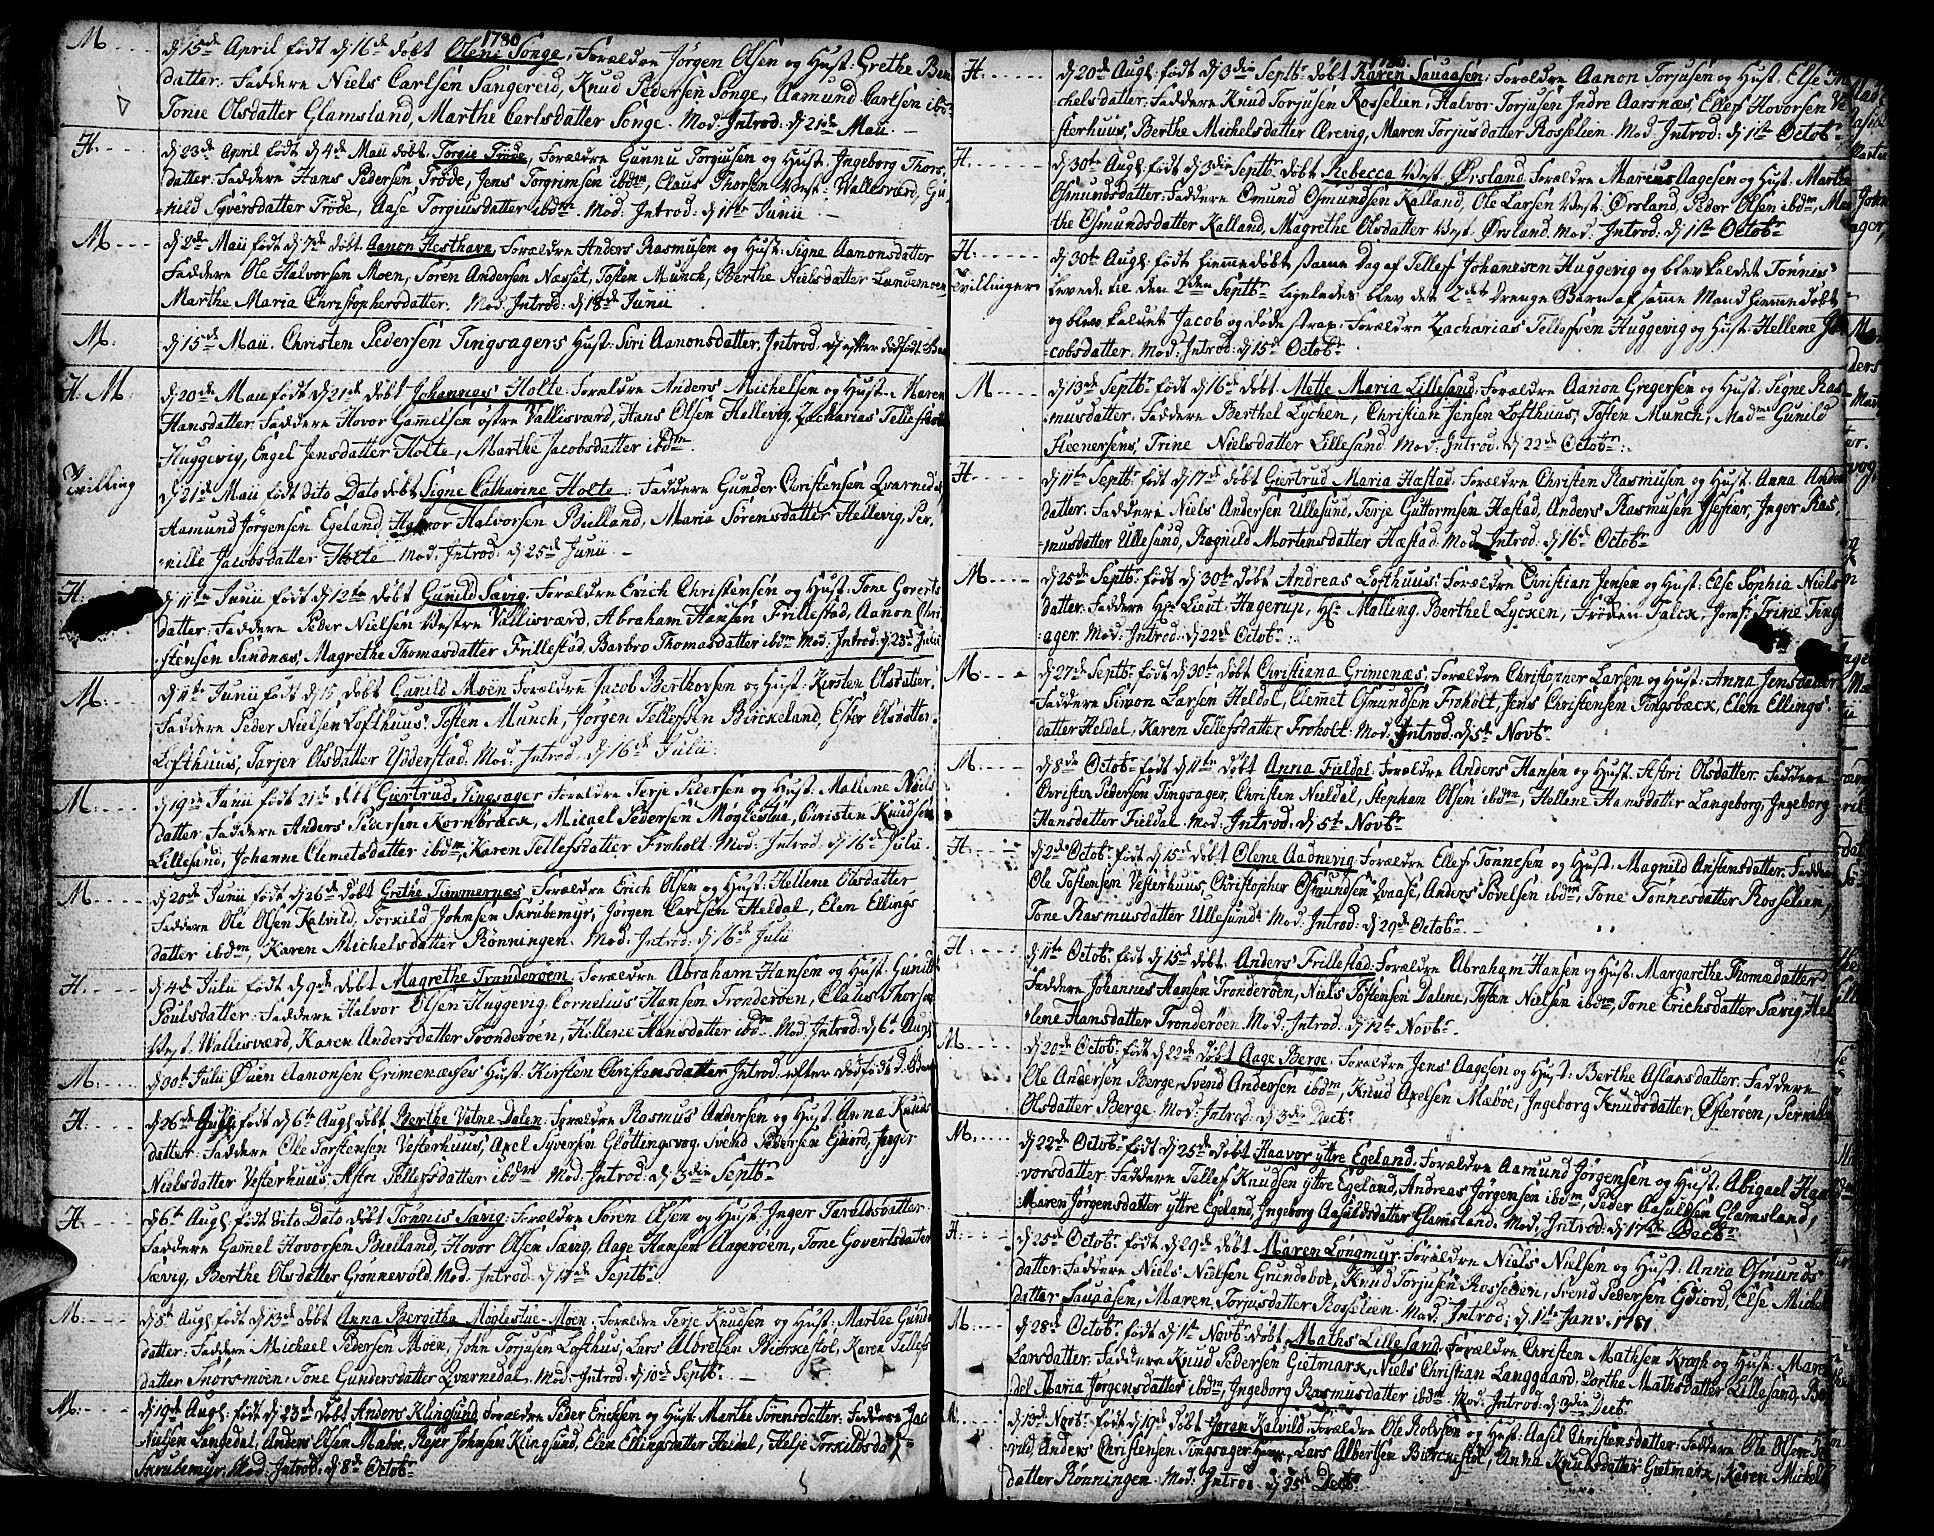 1780
M. d 15de April født d 16de døbt Olene Songe, Forældre Jørgen Olsen og Hust: Grethe
datter: Faddere Niels Carlsen Sangereid, Knud Pedersen Songe, Aamund Carlsen ibd:
Tonie Olsdatter Glamsland, Marthe Carlsdatter Songe. Mod: Introd: d 21de Maii.
H. d 23de April født d 4de Maii døbt Torgie Trøde, Forældre Gunnu Torgiusen og Hust: Ingeborg Thors
datter: Faddere Hans Pedersen Trøde, Jens Torgrimsen ibdm, Claus Thorsen Vest: Wallesværd, Gu
nild Syversdatter Trøde, Aase Torgiusdatter ibdm. Mod: Introd: d 11te Junii
M. d 2de Maii født d 7de døbt Aanon Hesthavn, Forældre Anders Rasmusen og Hust: Signe Aanonsdatter
Faddere Ole Halvorsen Moen, Søren Andersen Næsset, Tosten Munch, Berthe Nielsdatter
Marthe Maria Christophersdatter. Mod: Introd: d 18de Junii
M. d 15de Maii. Christen Pedersen Tingsagers Hust: Siri Aanonsdatter, Introd: efter dødfødt
H. M. d 20de Maii født d 21de døbt Johannes Holte: Forældre Anders Michelsen og Hust: Karen
Hansdatter. Faddere Hovor Gamelsen østre Vallisværd, Hans Olsen Hellevig, Zacharias
Huggevig, Engel Jensdatter Holte, Marthe Jacobsdatter ibdm.
Tvilling d 21de Maii født dito Dato døbt Signe Catharine Holte: Faddere Gunder Christensen Qvarnedal,
Aamund Jørgensen Egeland, Halvorsen Bielland, Maria Sørensdatter Hellevig, Per,
nille Jacobsdatter Holte. Mod: Introd: d 25de Junii.
H: d 11te Junii født d 12te døbt Gunild Sævig: Forældre Erich Christensen og Hust: Tone Goverts
datter: Faddere Peder Nielsen Vestre Vallisværd, Abraham Hansen Frillestad, Aanon Chri
stensen Sandnæs, Magrethe Thomasdatter Frillestad, Barbro Thomasdatter ibdm Mod: Introd: d 23de Julii
M: d 11te Junii født d 15 døbt Gunild Moen Forældre Jacob Berthovsen og Hust: Kirsten Olsdatter.
Faddere Peder Nielsen Lofthuus, Tosten Munch, Jørgen Tellefsen Birckeland, Ester Olsdatter
Lofthuus, Tarjer Olsdatter Ydderstad. Mod: Introd: d 16de Julii.
M. d 19de Junii født 21de døbt Giertrud Tingsager Forældre Terje Pedersen og Hust: Mallene Niels
datter. Faddere Anders Pedersen Kornbræck, Micael Pedersen Møglestue, Christen Knudsen
Lillesand, Johanne Clemetsdatter ibdm, Karen Tellefsdatter Froholt. Mod: Introd: d 16de Julii.
M. d 20de Junii født d 26de døbt Grethe Tømmernæs Forældre Erich Olsen og Hust: Hellene Olsdatter
Faddere Ole Olsen Kalvild, Torkild Johnsen Skrubemyr, Jørgen Carlsen Heldal, Elen Ellings
datter ibdm, Karen Michelsdatter Rønningen. Mod: Introd: d 16de Julii
H. d 4de Julii født d 9de døbt Magrethe Tronderøen. Forældre Abraham Hansen og Hust: Gunild
Poulsdatter: Faddere Halvor Olsen Huggevig, Cornelius Hansen Tronderøen, Claus Thorsen
Vest. Wallisværd, Karen Andersdatter Tronderøen, Hellene Hansdatter ibdm. Mod: Introd: d 6te Aug:
M. d 30te Julii Øuen Aanonsen Grimenæses Hust: Kirsten Christensdatter Introd: efter dødfødt
H. d 26de Julii født d 6te Aug: døbt Berthe Vatne-Dalen: Forældre Rasmus Andersen og Hust: Anna Knuds
datter: Faddere Ole Torstensen Vesterhuus, Axel Syversen Glottingsvog, Svend Pedersen Egiord, Inger
Nielsdatter Vesterhuus, Astri Tellefsdatter ibdm Mod: Introd: d 3die Septbr
H. d 6te Aug: født dito Dato døbt Tønnis Sævig: Forældre Søren Olsen og Hust: Inger Taraldsdatter
Faddere Gamel Hovorsen Bielland, Hovor Olsen Sævig, Aage Hansen Aagerøen, Tone Govertsdatter
Sævig, Berthe Olsdatter Grønnevold. Mod: Introd: d 17de Septbr
M. d 8de Aug: født d 13de døbt Anna Bergithe Møglestue-Moen: Forældre Terje Knudsen og Hust: Marthe Gund
datter: Faddere Michael Pedersen Moen, John Torjusen Lofthuus, Lars Albretsen Bierkestol, Karen Tellefs
datter Snorsmoen, Tone Gundersdatter Qvernedal. Mod: Introd: d 10de Septbr
M. d 19de Aug: født d 23de døbt Anders Klingsund Forældre Peder Ericksen og Hust: Marthe Sørensdatter. Faddere Jac
Nielsen Langedal, Anders Olsen Mæboe, Reyer Johnsen Klingsund, Elen Ellingsdatter Heldal, Helje Torkildsda
Skrubemyr. Mod: Introd: d 8de Octobr
1780.
H. d 20de Aug: født d 3die Septbr døbt Karen Sauaasen: Forældre Aanon Torjusen og Hust: Else Mi
chelsdatter. Faddere Knud Torjusen Rosselien, Halvor Torjusen Indre Aarsnæs, Ellef Hovorsen Ve
sterhuus, Berthe Michelsdatter Arevig, Maren Torjusdatter Rosselien. Mod: Introd: d 11te Octob
H. d 30te Aug: født d 3die Septbr døbt Rebecca Vest. Ørsland. Forældre Marcus Aagesen og Hust: Marthe
Osmundsdatter. Faddere Omund Osmundsen Kalland, Ole Larsen Vest: Ørsland, Peder Olsen ibdm, Mar
the Osmundsdatter Kalland, Magrethe Olsdatter Vest. Ørsland. Mod: Introd: d 11te Octobr
H. Tvillinger d 30te Aug: født hiemmedøbt samme Dag af Tellef Johannesen Huggevig og blev kaldet Tønnis
levede til den 2den Septbr ligeledes blev det 2det Drenge Barn af samme Mand hiemmedøbt
og blev kaldet Jacob og døde strax: Forældre Zacharias Tellefsen Huggevig og Hust: Hellene Ja
cobsdatter. Mod: Introd: d 15de Octobr
M. d 13de Septbr født d 16de døbt Mette Maria Lillesand: Forældre Aanon Gregersen og Hust: Signe Ras
musdatter. Faddere Berthel Lycken, Christian Jensen Lofthuus, Tosten Munch, Madme Gunild
Heenersens, Trine Nielsdatter Lillesand. Mod: Introd: d 22de Octobr
H. d 11te Septbr født d 17de døbt Giertrud Maria Hæstad. Forældre Christen Rasmusen og Hust: Anna Anders
datter. Faddere Niels Andersen Ullesund, Terje Guttormsen Hæstad, Anders Rasmusen Ysefiær, Inger Ras,
musdatter Ullesund, Ragnild Mortensdatter Hæstad. Mod: Introd: d 16de Octobr
M. d 25de Septbr født d 30te døbt Andreas Lofthuus: Forældre Christian Jensen og Hust: Else Sophia Niels
datter: Faddere Hr Lieut: Hagerup, Hr Malling, Berthel Lycken, Frøden Falck, Jomf: Trine Tings
ager. Mod: Introd: d 22de Octobr
M. d 27de Septbr født d 30te døbt Christiana Grimenæs: Forældre Christopher Larsen og Hust: Anna Jensdatter
Faddere Simon Larsen Heldal, Clemet Osmundsen Froholt, Jens Christensen Tingsbæck, Elen Ellings
datter Heldal, Karen Tellefsdatter Froholt. Mod: Introd: d 5te Novbr
M. d 8de Octobr født d 11te døbt Anna Fieldal: Forældre Anders Hansen og Hust: Astri Olsdatter. Faddere
Christen Pedersen Tingsager, Christen Nieldal, Stephan Olsen ibdm, Hellene Hansdatter Langeborg, Ingeborg
Hansdatter Fieldal. Mod: Introd: d 5te Novbr
H. d 2de Octobr født d 15de døbt Olene Aadnevig. Forældre Ellef Tønnesen og Hust: Magnild Anstensdatter. Faddere
Ole Tostensen Vesterhuus, Christopher Osmundsen Qvaase, Anders Povelsen ibdm, Tone Tønnesdatter Rosselien,
Tone Rasmusdatter Ullesund. Mod: Introd: d 29de Octobr
H. d 11te Octobr født d 15de døbt Anders Frillestad. Forældre Abraham Hansen og Hust: Margarethe Thomædatter
Faddere Johannes Hansen Tronderøen, Niels Tostensen Dalene, Tosten Nielsen ibdm, Tone Erichsdatter Sævig, Hel
lene Hansdatter Tronderøen. Mod: Introd: d 12te Novbr.
M. d 20de Octobr født d 22de døbt Aage Berge: Forældre Jens Aagesen og Hust: Berthe Aslaksdatter. Faddere
Ole Andersen Berge, Svend Andersen ibdm, Knud Axelsen Mæboe, Ingeborg Knudsdatter Østerøen, Pernille
Olsdatter Berge. Mod: Introd: d 3die Decbr
M. d 22de Octobr født d 25de døbt Haavor yttre Egeland. Forældre Aamund Jørgensen og Hust: Abigael Haa
vorsdatter. Faddere Tellef Knudsen yttre Egeland, Andreas Jørgensen ibdm, Peder Aasuldsen Glamsland,
Maren Jørgensdatter yttre Egeland, Ingeborg Aasuldsdatter Glamsland. Mod: Introd: d 17de Decbr
H. d 25de Octobr født d 29de døbt Maren Longmyr. Forældre Niels Nielsen og Hust: Anna Osmunds
datter: Faddere Niels Nielsen Grundeboe, Knud Torjusen Rosselien, Svend Pedersen Egiord, Else Michels
datter Sauaasen, Maren Torjusdatter Rosselien. Mod: Introd: d 1te Janv: 1781.
M. d 28de Octobr født d 1te Novbr døbt Maths Lillesand, Forældre Christen Mathsen Kragh og Hust: Maren
Larsdatter. Faddere Knud Pedersen Gietmark, Niels Christian Langgaard, Dorthe Mathsdatter Lillesand, Bo
del Maria Jørgensdatter ibdm, Ingeborg Rasmusdatter ibdm. Mod: Introd: d 3die Decbr
M. d 13de Novbr født d 19de døbt Joran Kalvild. Forældre Ole Rolvsen og Hust: Aasil Christensdatter: Faddere Ole Olsen
vild, Anders Christensen Tingsager, Lars Albertsen Bierkestol, Anna Knudsdatter Gietmark, Karen Michels
datter Rønningen. Mod: Introd: d 25de Decbr